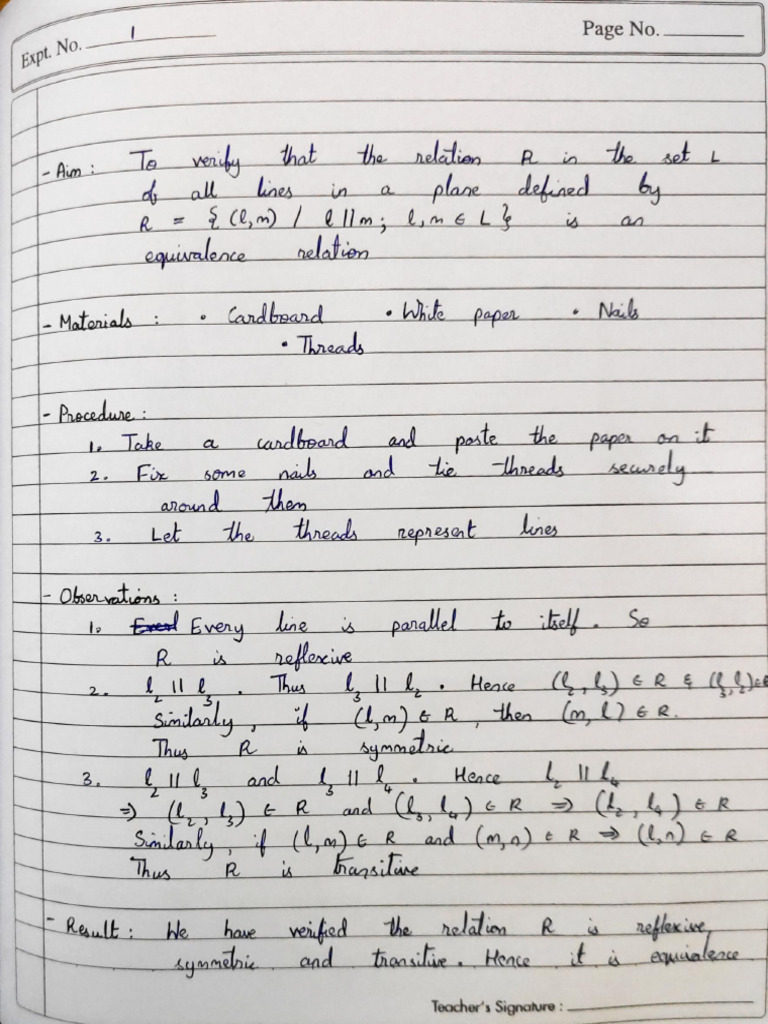 Expt. No. 1
Page No.
- Aim : To verify that the relation R in the set L
of all lines in a plane defined by
R = { (l,m) / l || m ; l, m ∈ L } is an
equivalence relation
- Materials : • Cardboard • White paper • Nails
• Threads
- Procedure :
1. Take a cardboard and paste the paper on it
2. Fix some nails and tie threads securely
around them
3. Let the threads represent lines
- Observations :
1. Every line is parallel to itself. So
R is reflexive
2. l₂ || l₃ . Thus l₃ || l₂ . Hence (l₂, l₃) ∈ R & (l₃, l₂) ∈ R
Similarly, if (l,m) ∈ R, then (m, l) ∈ R.
Thus R is symmetric
3. l₂ || l₃ and l₃ || l₄ . Hence l₂ || l₄
⇒ (l₂, l₃) ∈ R and (l₃, l₄) ∈ R ⇒ (l₂, l₄) ∈ R
Similarly, if (l,m) ∈ R and (m,n) ∈ R ⇒ (l,n) ∈ R
Thus R is transitive
- Result : We have verified the relation R is reflexive,
symmetric and transitive. Hence it is equivalence
Teacher's Signature :